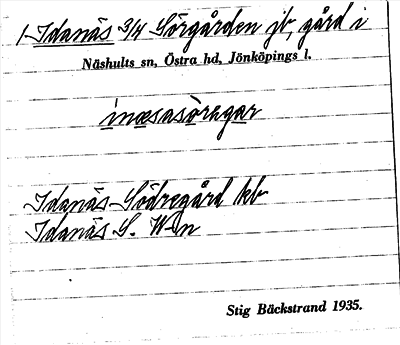 1 Idanäs 3/4 Sörgården jb, gård i
Näshults sn, Östra hd, Jönköpings l.
Idanäs Södregård kb
Idanäs S. W-n
Stig Bäckstrand 1935.